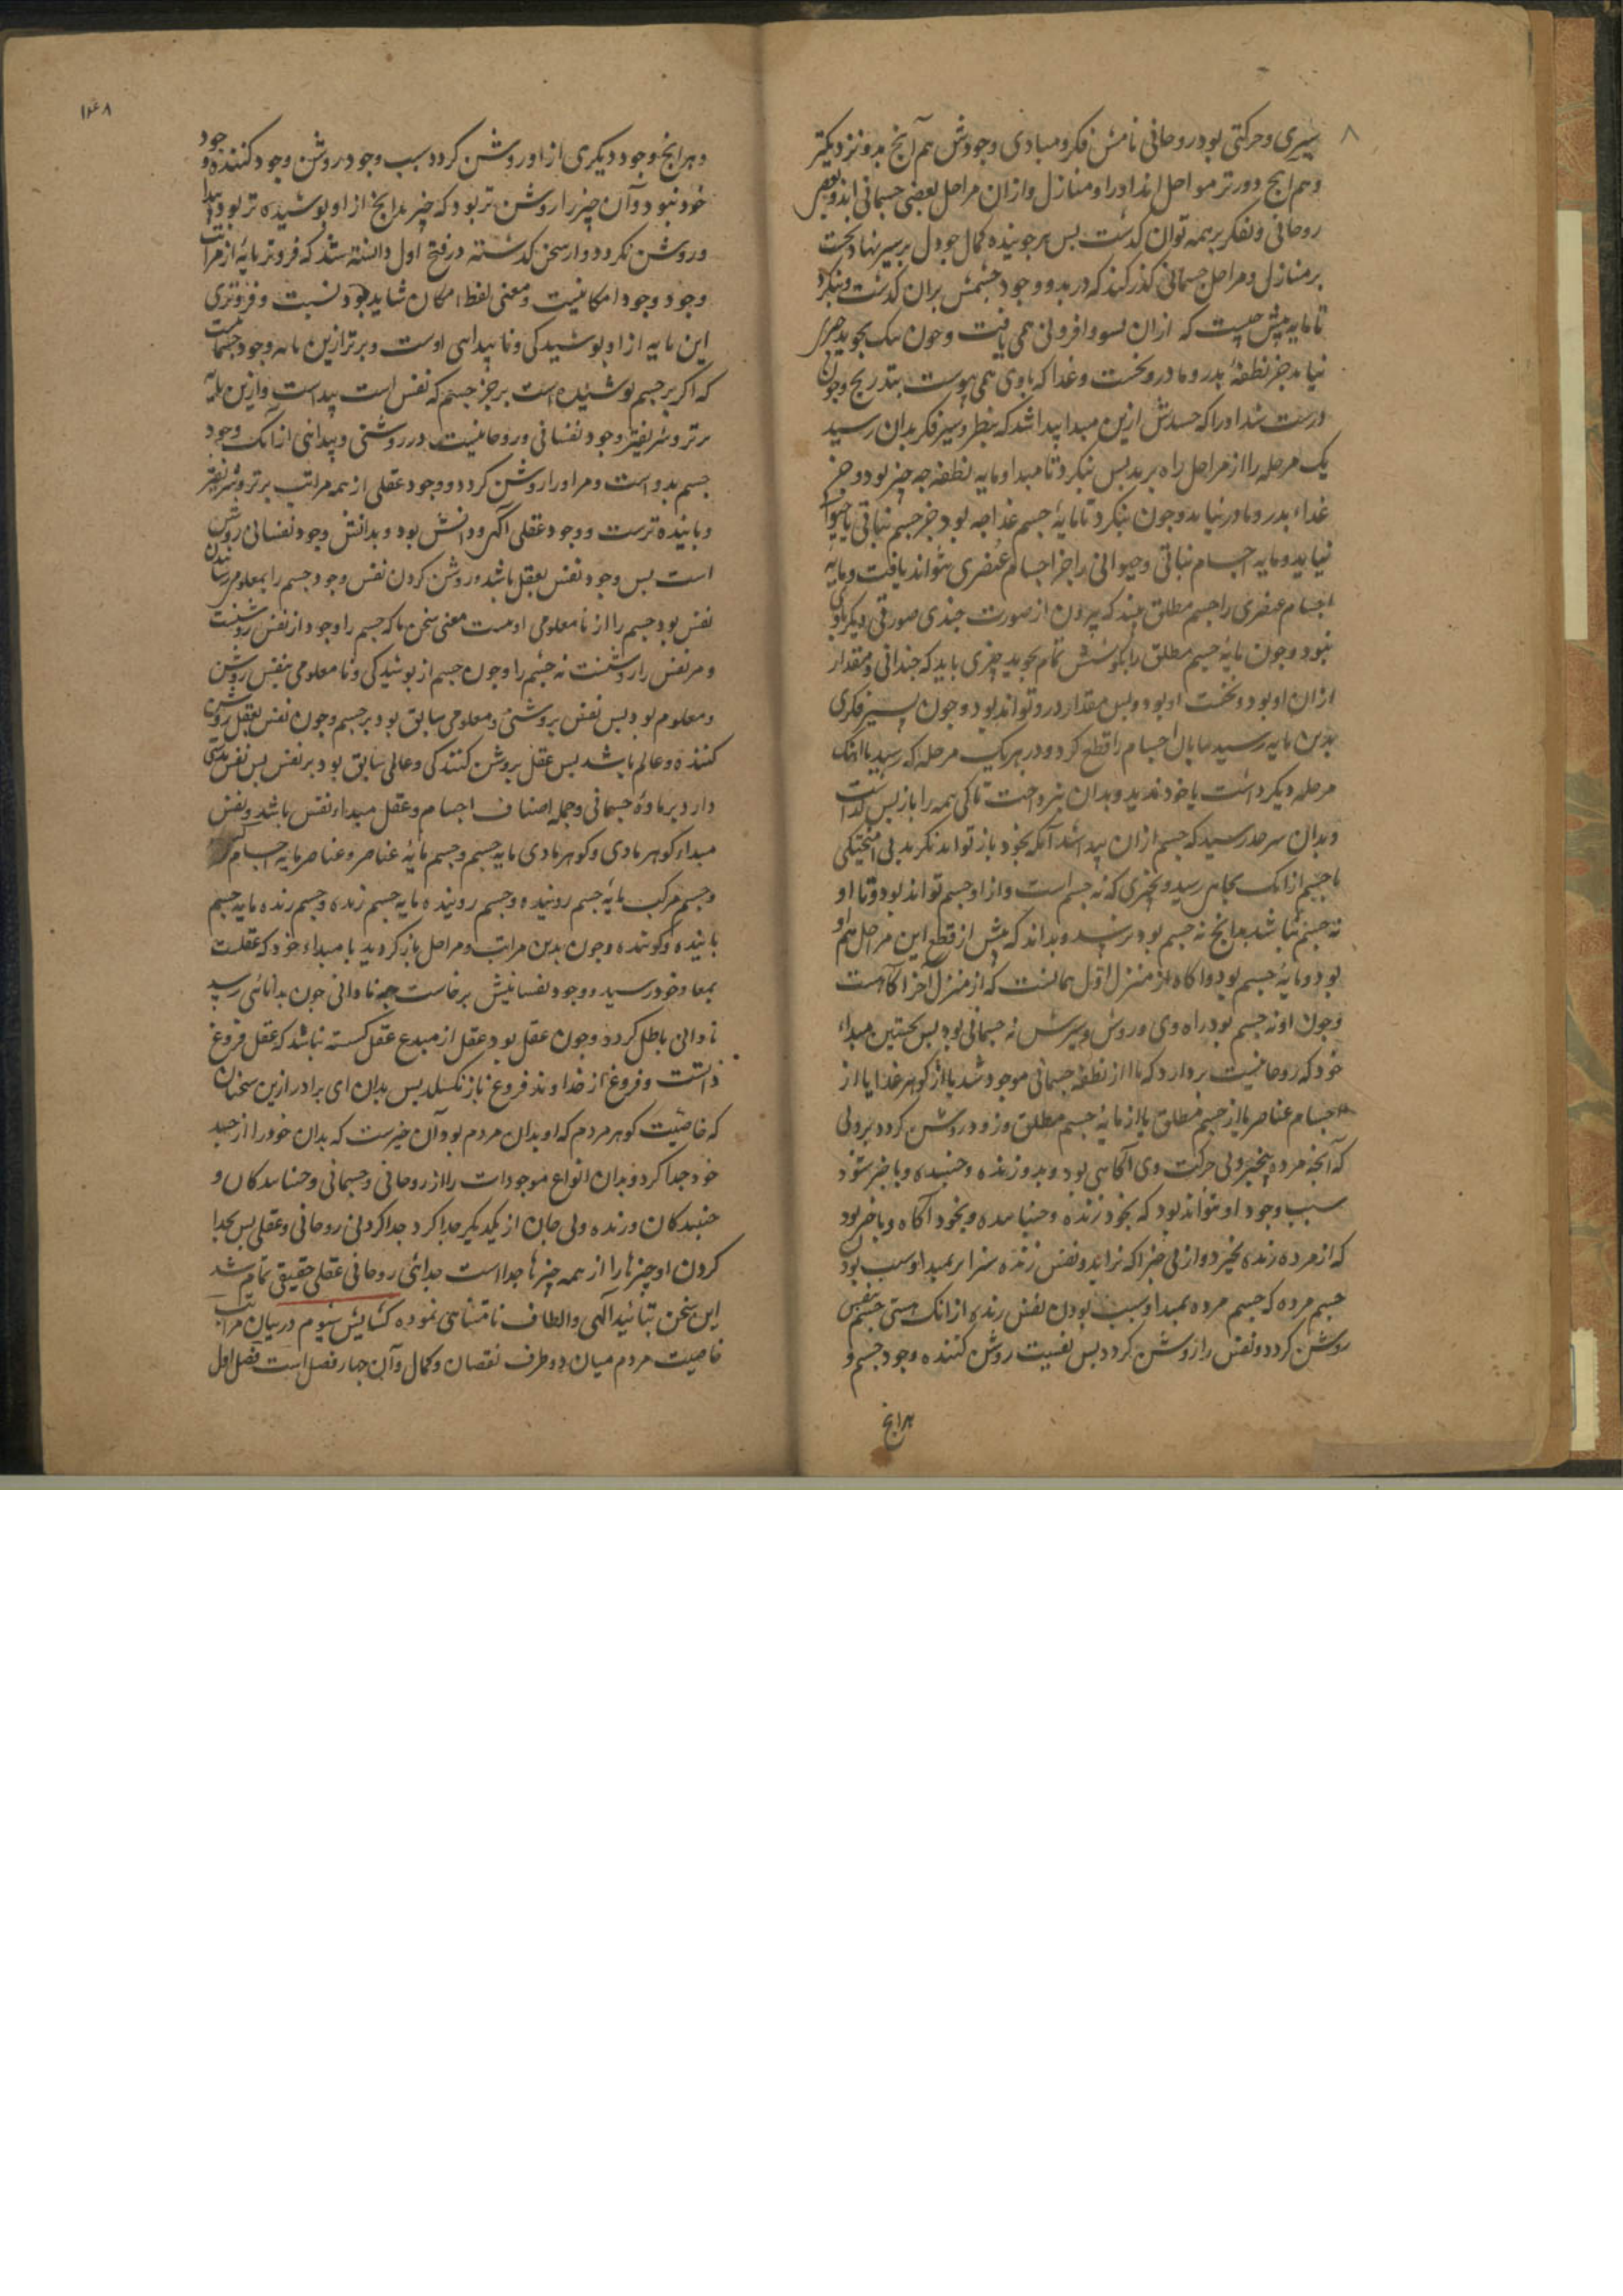 ۸
سیری و حرکتی بود روحانی نامش فکر و مبادی وجودش هم آنچ بدو نزدیکتر
و هم انچ دورتر مراحل اند او را و منازل و ازان مراحل بعضی جسمانی اند و بعضی
روحانی و بفکر بر همه توان کذشت بس هر جوینده کمال جو دل بر سیر نهاد نخست
بر منازل و مراحل جسمانی کذر کند که در بدو وجود جسمش بران کذشت و بنکرد
تا مایه پیش چیست که ازان نمو و افزونی همی یافت و چون نیک بجوید چیز
نیابد جز نطفهٔ بدر و مادر و نخست و غذا که با وی همی پیوست بتدریج و چون
درست شد او را که جسدش ازین مبدا پیدا شد که بنظر و سیر فکر بدان رسید
یک مرحله را از مراحل راه برید بس بنکرد تا مبدا و مایه نطفه چه چیز بود و جز
غذاء بدر و مادر نیابد و چون بنکرد تا مایهٔ جسم غذا چه بود جز جسم نباتی یا حیوا
نیابد و مایه اجسام نباتی و حیوانی را جز اجسام عنصری نتواند یافت و مایه
اجسام عنصری را جسم مطلق بیند که بیرون از صورت جندی صورتی دیکر با وی
نبود و چون مایهٔ جسم مطلق را بکوشش تمام بجوید چیزی باید که جندانی و مقدار
ازان او بود و نخست او بود و بس مقدار درو تواند بود و چون بسیر فکری
بدین مایه رسید بیابان اجسام را قطع کرد و در هر یک مرحله که رسید با انک
مرحله دیکر داشت با خود ندید و بدان نپرداخت تا کی همه را باز بس کذاشت
و بدان سرحد رسید که جسم ازان پیدا شد آنکه بخود باز تواند نکرید بی امیختکی
با جسم ازانک بجای رسید و بچیزی که نه جسم است و از او جسم تواند بود و تا او
نه جسم نباشد بدانچ نه جسم بود نرسد و بداند که پیش از قطع این مراحل هم او
بود و مایهٔ جسم بود و اکاه از منزل اول همانست که از منزل آخر اکاهست
و چون او نه جسم بود راه وی و روش و سیرش نه جسمانی بود بس نخستین مبداء
خود که روحانیت بردارد که ما از نطفه جسمانی موجود شد یا از کوهر غذا یا از
اجسام عناصر یا از جسم مطلق یا از مایهٔ جسم مطلق و زود روشن کردد برو لی
که آنچه مرده بیخبر و بی حرکت وی آکاهی بود و بدو زنده و جنبیده و با خبر شود
سبب وجود او نتواند بود که بخود زنده و جنباننده و بخود آکاه و با خبر بود
که از مرده زنده نخیزد و از بی خبر اکه نزاید و نفس زنده سزاتر بمبدا و سبب بود
جسم مرده که جسم مرده بمبدا و سبب بودن نفس زنده ازانک هستی جسم بنفس
روشن کردد و نفس را روشن کردد بس نفسیت روشن کننده وجود جسم و
هرانچ
۱۴۸
و هرانچ وجود دیکری از او روشن کردد سبب وجود روشن وجود کننده وجود
خود نبود و آن چیز را روشن تر بود که چیز بدانچ از او بوشیده تر بود پیدا
و روشن نکردد و از سخن کذشته در فتح اول دانسته شد که فروتر مایه از مراتب
وجود وجود امکانیست و معنی لفظ امکان شاید بود نسبت و فروتری
این مایه از او بوشیدکی و نا پیدایی اوست و برتر ازین مایه وجود جسمانیت
که اکر بر جسم بوشیده است بر جز جسم که نفس است پیداست و ازین مایه
برتر و شریفتر وجود نفسانی و روحانیست در روشنی و پیدایی ازانک وجود
جسم بدو است و مر او را روشن کردد و وجود عقلی از همه مراتب برتر و شریفتر
و پاینده ترست و وجود عقلی آکهی و دانش بود و بدانش وجود نفسانی روشن
است بس وجود نفس بعقل باشد و روشن کردن نفس وجود جسم را بمعلومی رسانیدن
نفس بود جسم را از نامعلومی اوست معنی سخن ما که جسم را وجود از نفس روشنیست
و مر نفس را روشنست نه جسم را و چون جسم از بوشیدکی و نامعلومی بنفس روشن
و معلوم بود بس نفس بروشنی و معلومی سابق بود بر جسم و چون نفس بعقل روشن
کننده و عالم باشد بس عقل بروشن کنندکی و عالمی سابق بود بر نفس بس نفس هستی
دارد بر مادهٔ جسمانی و جمله اصناف اجسام و عقل مبداء نفس باشد و نفس
مبداء کوهر مادی و کوهر مادی مایه جسم و جسم مایهٔ عناصر و عناصر مایه اجسام مرکب
و جسم مرکب مایهٔ جسم روینده و جسم روینده مایه جسم زنده و جسم زنده مایه جسم
یابنده و کوینده و چون بدین مراتب و مراحل باز کردید با مبداء خود که عقلست
بمعاد خود رسید و وجود نفسانیش برخاست چه نادانی چون بدانائی رسید
نادانی باطل کردد و چون عقل بود عقل از مبدع عقل کسسته نباشد که عقل فروغ
ذاتست و فروغ از خداوند فروغ باز نکسلد بس بدان ای برادر ازین سخنان
که خاصیت کوهر مردم که او بدان مردم بود آن چیزست که بدان خود را از جسد
خود جدا کرد و بدان انواع موجودات را از روحانی و جسمانی و جنبانندکان و
جنبندکان و زنده و بی جان از یکدیکر جدا کرد جدا کردنی روحانی و عقلی بس بجدا
کردن او چیزها را از همه چیزها جداست جدائی روحانی عقلی حقیقی تمام شد
این سخن بتائید آلهی و الطاف نامتناهی نموده کشایش سیوم در بیان مراتب
خاصیت مردم میان دو طرف نقصان و کمال و آن چهار فصل است فصل اول